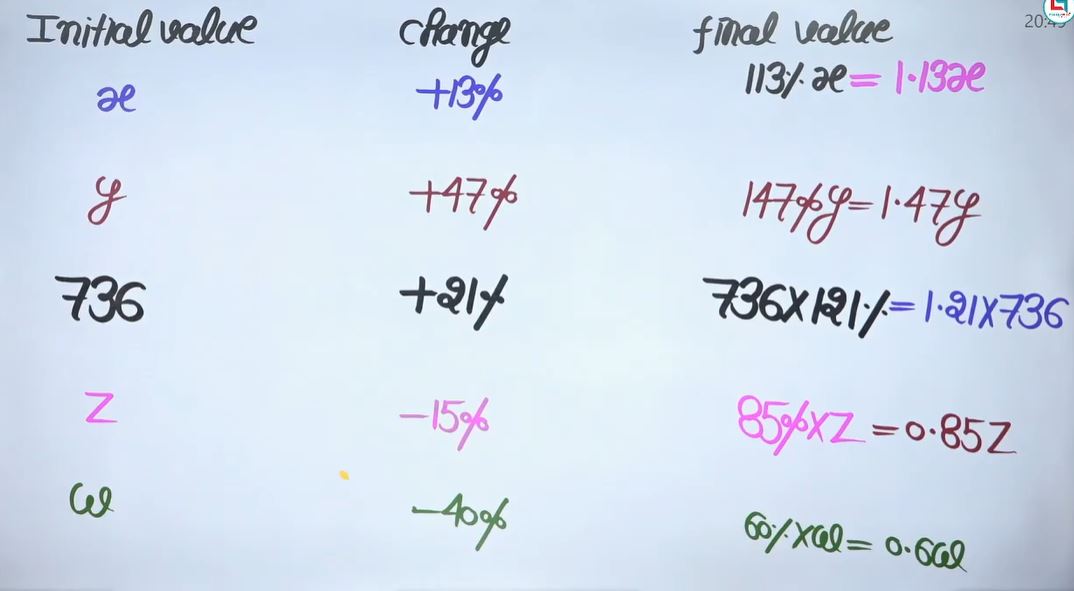 Initial value change final value
x +13% 113% x = 1.13x
y +47% 147% y = 1.47y
736 +21% 736x121% = 1.21x736
Z -15% 85% x Z = 0.85Z
ω -40% 60% x ω = 0.6ω